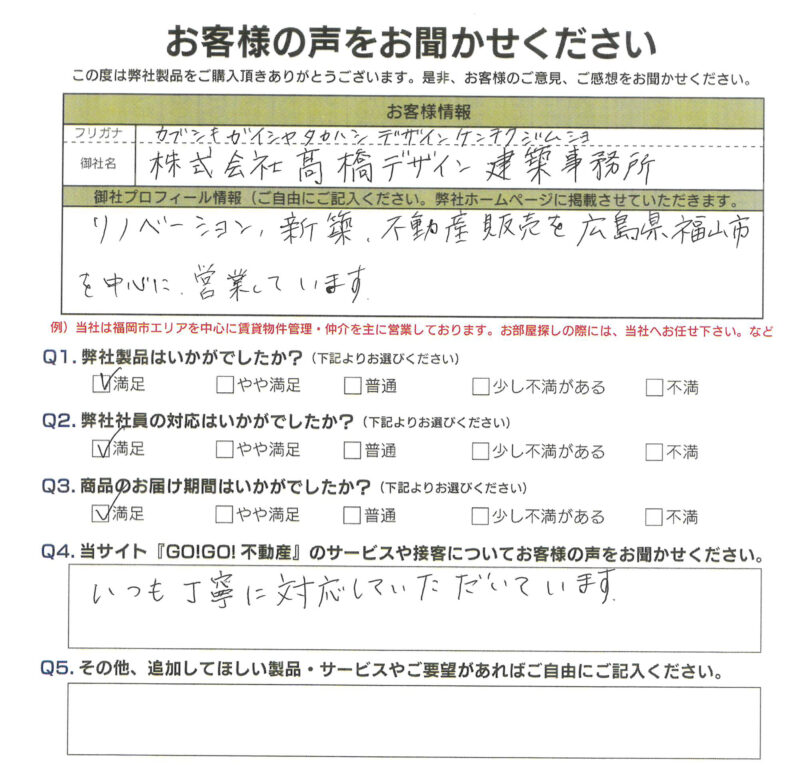 お客様の声をお聞かせください
この度は弊社製品をご購入頂きありがとうございます。是非、お客様のご意見、ご感想をお聞かせください。
お客様情報
フリガナ カブシキガイシャタカハシ デザインケンチクジムショ
御社名 株式会社髙橋デザイン建築事務所
御社プロフィール情報（ご自由にご記入ください。弊社ホームページに掲載させていただきます。
リノベーション、新築、不動産販売を広島県福山市
を中心に、営業しています。
例）当社は福岡市エリアを中心に賃貸物件管理・仲介を主に営業しております。お部屋探しの際には、当社へお任せ下さい。など
Q1. 弊社製品はいかがでしたか？（下記よりお選びください）
☑満足 □やや満足 □普通 □少し不満がある □不満
Q2. 弊社社員の対応はいかがでしたか？（下記よりお選びください）
☑満足 □やや満足 □普通 □少し不満がある □不満
Q3. 商品のお届け期間はいかがでしたか？（下記よりお選びください）
☑満足 □やや満足 □普通 □少し不満がある □不満
Q4. 当サイト『GO!GO! 不動産』のサービスや接客についてお客様の声をお聞かせください。
いつも丁寧に対応していただいています。
Q5. その他、追加してほしい製品・サービスやご要望があればご自由にご記入ください。